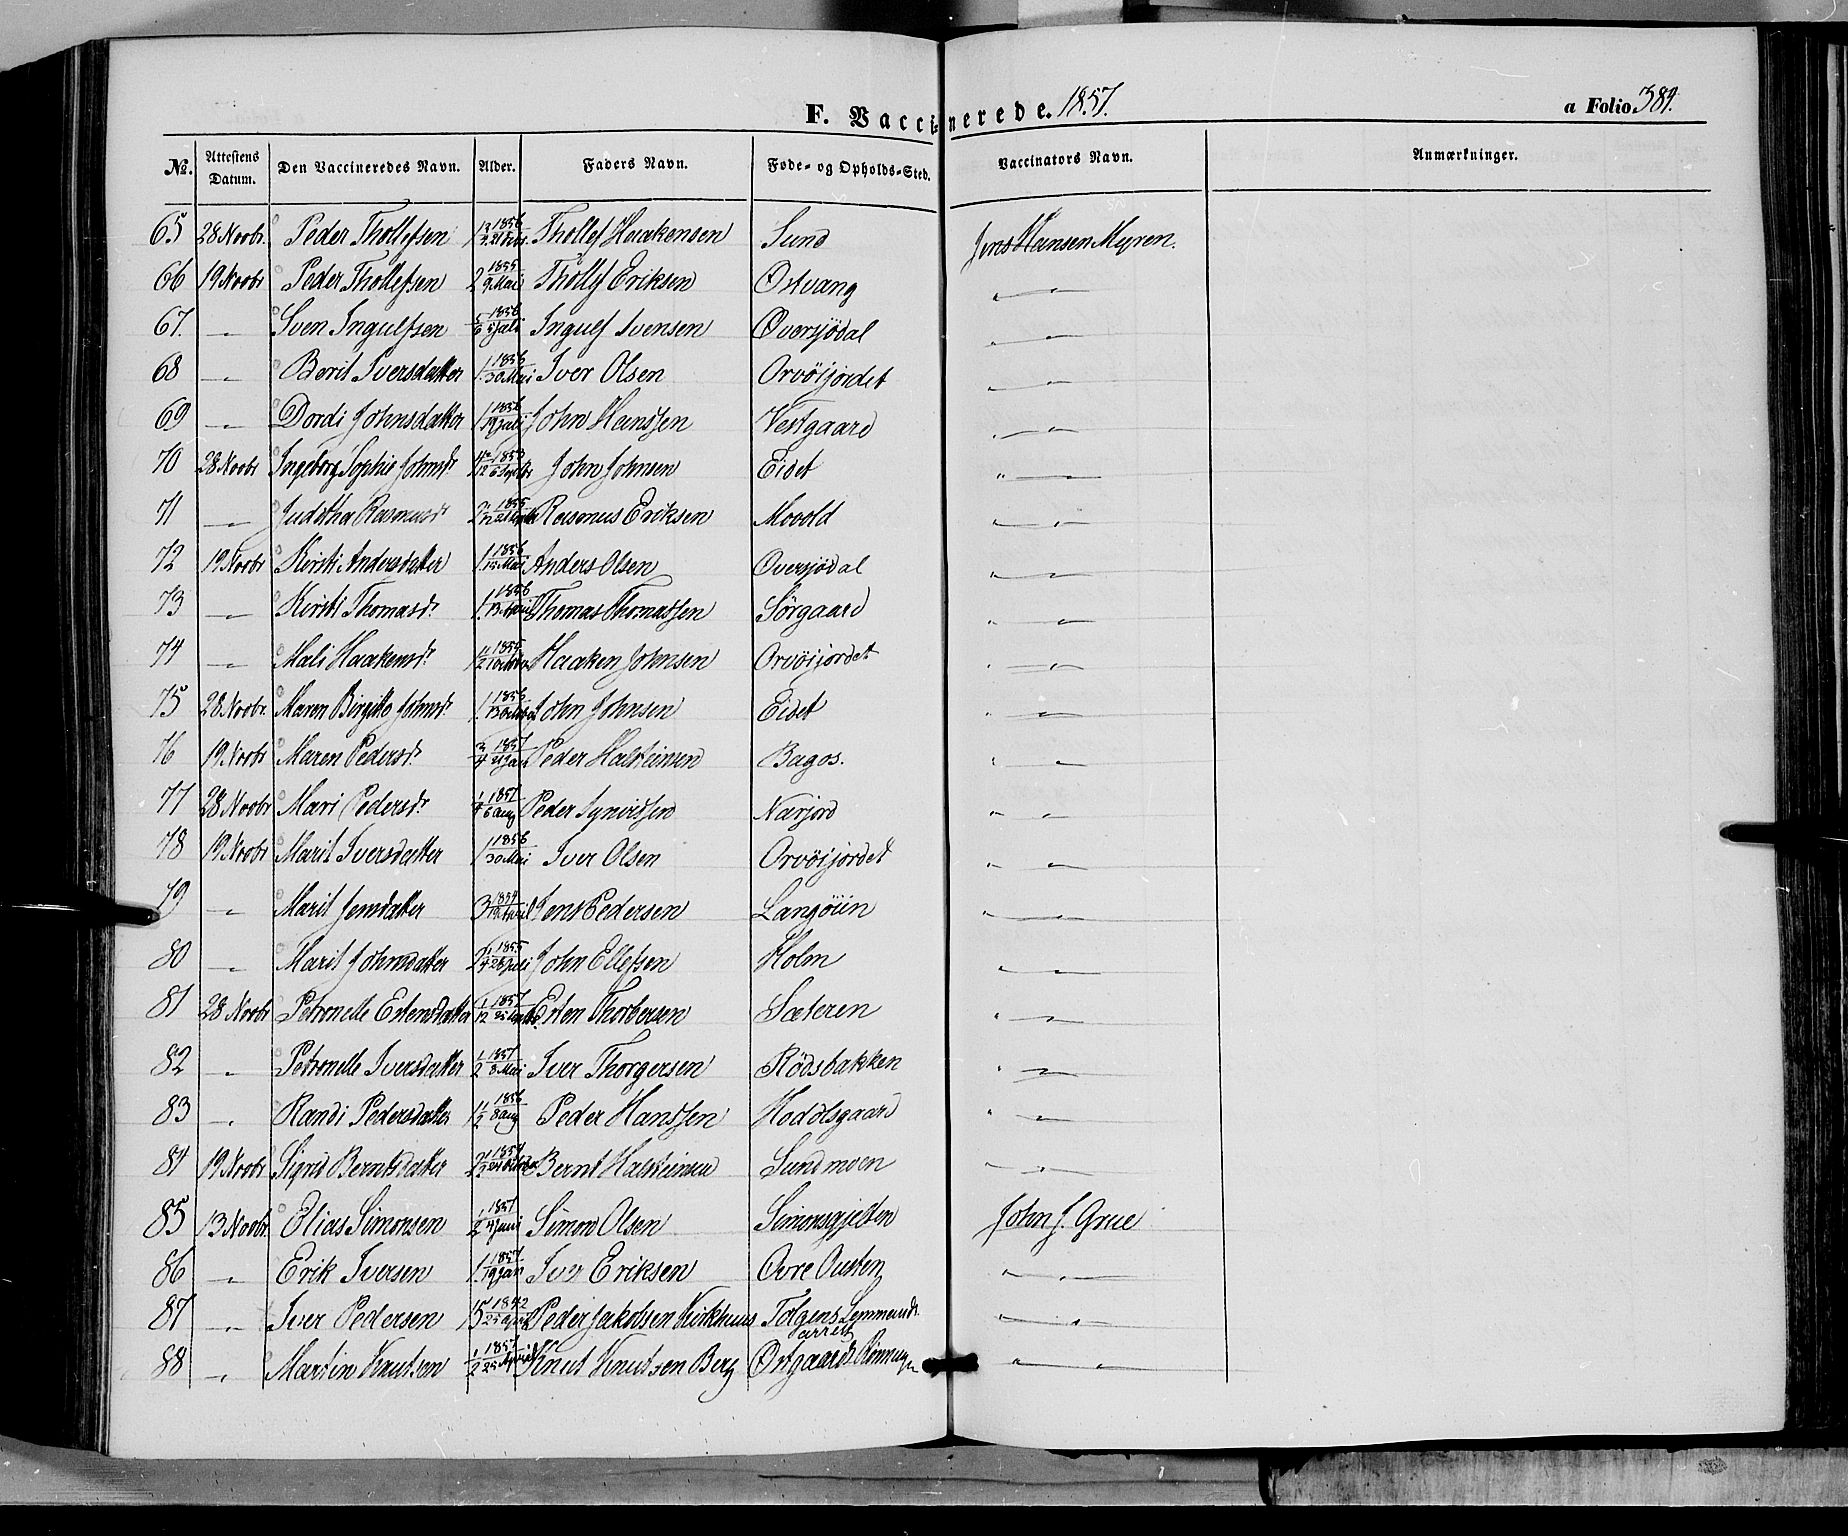 F. Vaccinerede. 1857.
a Folio 384.
No. Attestens Datum. Den Vaccineredes Navn. Alder. Faders Navn. Føde- og Opholds-Sted. Vaccinators Navn. Anmærkninger.
65 28 Novbr. Peder Thollefsen 1 1856 Thollef Haakensen Sund Jens Hansen Myren.
66 19 Novbr Peder Thollefsen 2 1855 9 Mai Thollf Eriksen Ostvang " "
67. " Sven Ingulfsen 1856 5 Juli Ingulf Svensen Oversjødal " "
68 " Berit Iversdatter 1 1856 30 Mai Iver Olsen Orvöijordet " "
69 " Dordi Johnsdatter 1 1856 19 Juli John Hanssen Vestgaard " "
70 28 Novbr Ingeborg Sophie Johnsdr John Johnsen Eidet " "
71 " Rasmusdr 2 1855 Rasmus Eriksen Movold " "
72 19 Novbr Kirsti Andersdatter 1 1856 Mai Anders Olsen Oversjödal " "
73 " Kirsti Thomasdr 1 1856 13 April Thomas Thomassen Sörgaard " "
74 " Mali Haakensdr 1 1/2 Haaken Johnsen Orvöijordet " "
75 28 Novbr. Maren Birgitte Johnsdr. 1 1856 13 John Johnsen Eidet " "
76 19 Novbr Maren Pedersdr 3/4 1857 21 Jan Peder Halsteinsen Bagos. " "
77 28 Novbr Mari Pedersdr 1/4 1857 6 Aug Peder Narjord " "
78 19 Novbr Marit Iversdatter 1 1856 30 Mai Iver Olsen Orvöijordet " "
79 " Marit Jensdatter 3 1854 19 April Jens Pedersen Langöien " "
80 " Marit Johnsdatter 2 1/4 1855 28 Juli John Ellefsen Holm " "
81 28 Novbr Petronelle Estensdatter 1/12 1857 25 Esten Thorbersen Sæteren " "
82 " Petronelle Iversdatter 1/2 1857 8 Mai Iver Thorgersen Rödsbakken " "
83 " Randi Pedersdatter 1 1/2 1856 8 Aug Peder Hanssen Hoddlsgaard " "
84 19 Novbr Sigrid Berntsdatter Bernt Halsteinsen Sundmoen " "
85 13 Novbr. Elias Simonsen 1/2 1857 4 Juni Simon Olsen Simonsgjelten John J. Grue
86 " Erik Iversen 1 1857 19 Jan Iver Eriksen Ovre Ousten " "
87 " Iver Pedersen 15 1842 25 April Peder Jakobsen Kirkhuus Tolgens arrest " "
88 " Martin Knutsen 1/2 1857 25 April Knut Knutsen Berg Ostgaards Rönningen " "